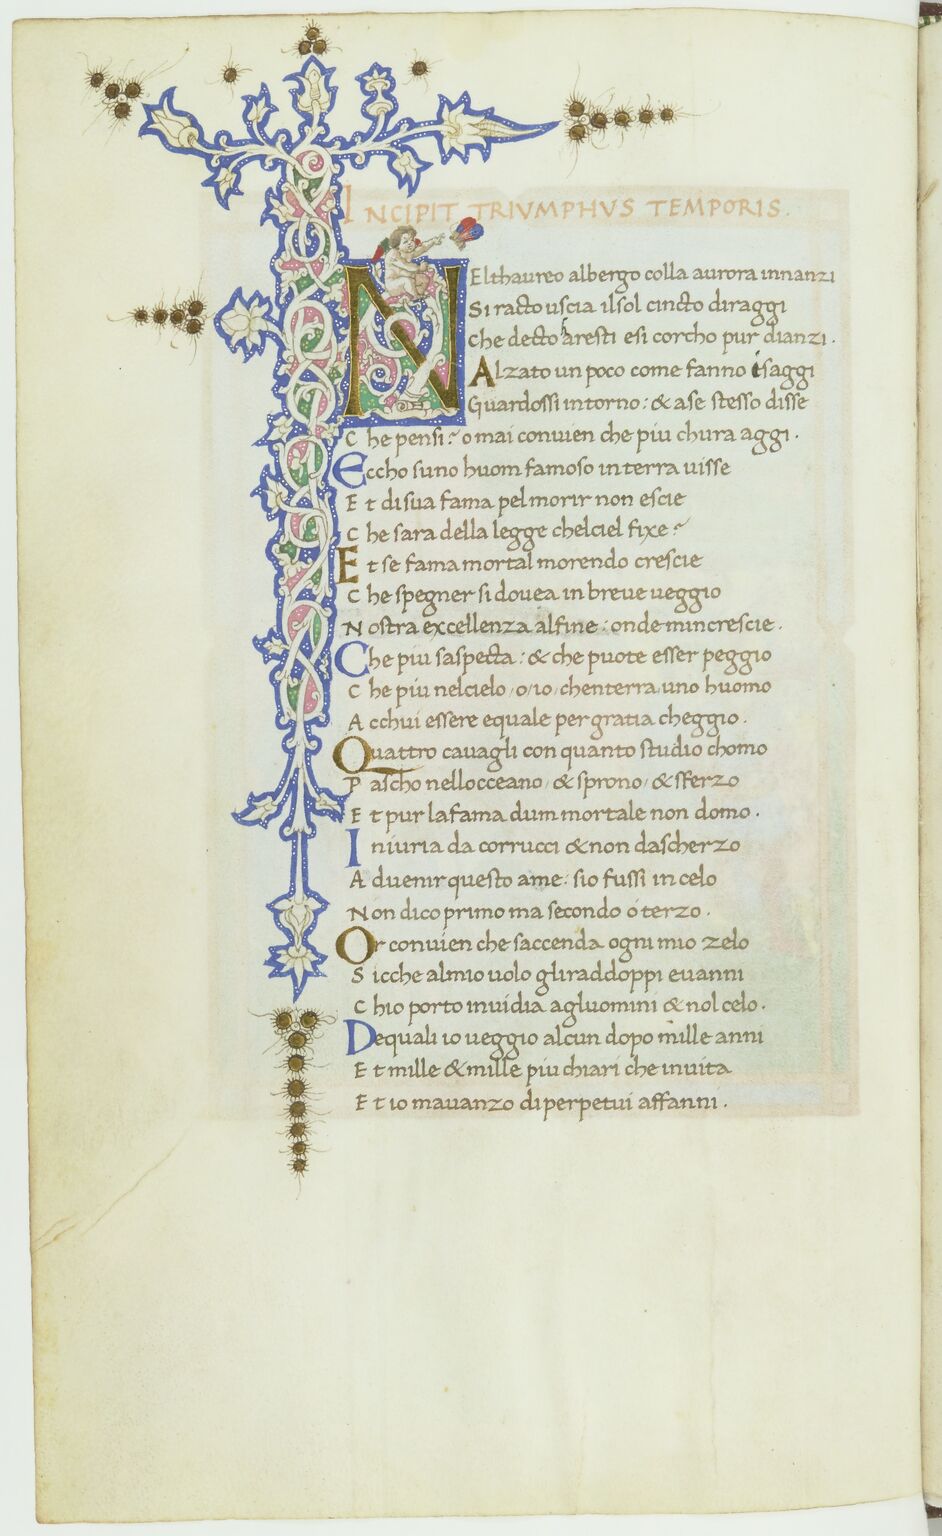 INCIPIT TRIVMPHVS TEMPORIS.
NElthaureo albergo colla aurora innanzi
Si racto uscia ilsol cincto diraggi
Che decto aresti esi corcho pur dianzi.
Alzato un poco come fanno isaggi
Guardossi intorno: & ase stesso disse
Che pensi? omai convien che piu chura aggi.
Eccho suno huom famoso in terra uisse
Et disua fama pel morir non escie
Che sara della legge chelciel fixe?
Et se fama mortal morendo crescie
Che spegner si douea in breue ueggio
Nostra excellenza alfine: onde mincrescie.
Che piu saspecta: & che puote esser peggio
Che piu nelcielo/o/io/chenterra uno huomo
Acchui essere equale per gratia cheggio.
Quattro cauagli con quanto studio chomo
Pascho nellocceano/& sprono/& sferzo
Et pur lafama dum mortale non domo.
Iniuria da corrucci & non dascherzo
Aduenir questo ame: sio fussi in celo
Non dico primo ma secondo o terzo.
Or convien che saccenda ogni mio zelo
Sicche almio uolo gliraddoppi euanni
Chio porto inuidia agluomini & nol celo.
Dequali io ueggio alcun dopo mille anni
Et mille & mille piu chiari che inuita
Et io mauanzo diperpetui affanni.